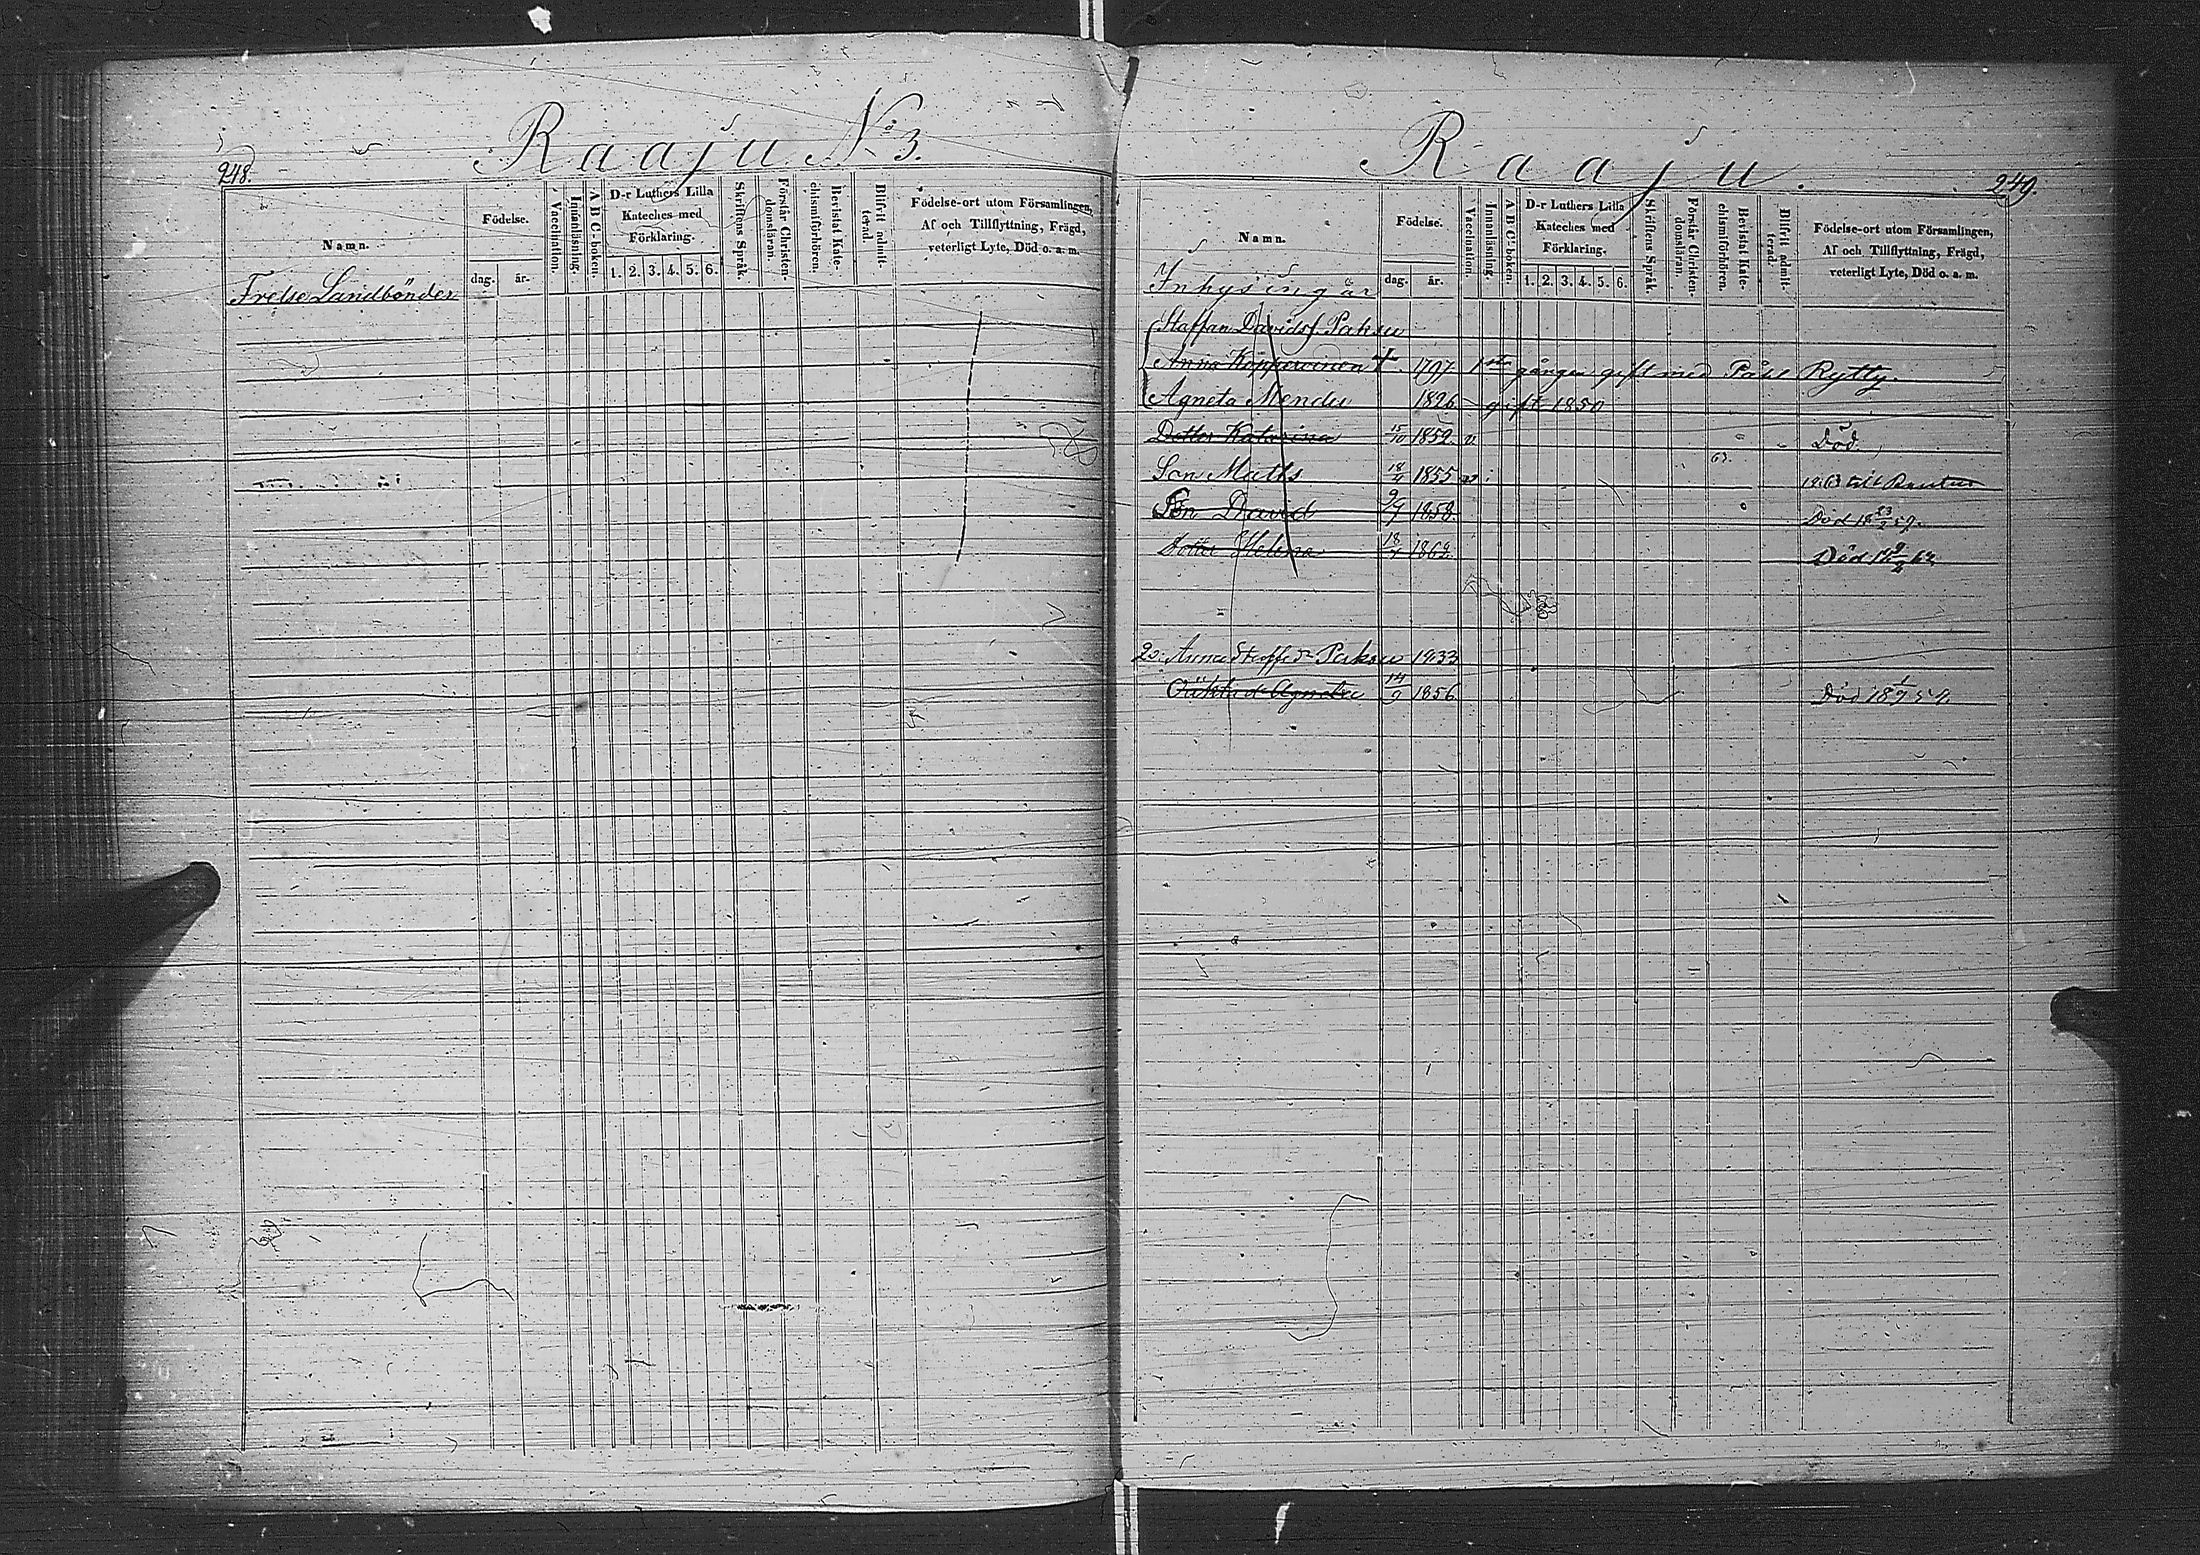 248.
Raaju No 3.
Namn.
Födelse.
dag. år.
Vaccination.
Innanläsning.
A B C-boken.
D-r Luthers Lilla
Kateches med
Förklaring.
1. 2. 3. 4. 5. 6.
Skriftens Språk.
Förstår Christen-
domsläran.
Bevistat Kate-
chismiförhören.
Blifvit admit-
terad.
Födelse-ort utom Församlingen,
Af och Tillflyttning, Frägd,
veterligt Lyte, Död o. a. m.
Frelse Landbönder
Raaju.
249.
Namn.
Födelse.
dag. år.
Vaccination.
Innanläsning.
A B C-boken.
D-r Luthers Lilla
Kateches med
Förklaring.
1. 2. 3. 4. 5. 6.
Skriftens Språk.
Förstår Christen-
domsläran.
Bevistat Kate-
chismiförhören.
Blifvit admit-
terad.
Födelse-ort utom Församlingen,
Af och Tillflyttning, Frägd,
veterligt Lyte, Död o. a. m.
Inhysingar
Staffan Davidsf. Paksu
Anna Kopperoinen + 1797 1sta gången gift med Påhl Rytty.
Agneta Mendu 1826 gift 1850
Dotter Katarina 15/10 1852. v. Död.
Son Matts 18/4 1855 v. 63. 1863 till Rautus
Son David 9/7 1858. Död 18 23/2 59.
Dotter Helena 18/4 1862. Död 18 9/2 62
2: Anna Staffsdr Paksu 1833
Oäkta dr Agneta 14/9 1856 Död 18 1/9 57.